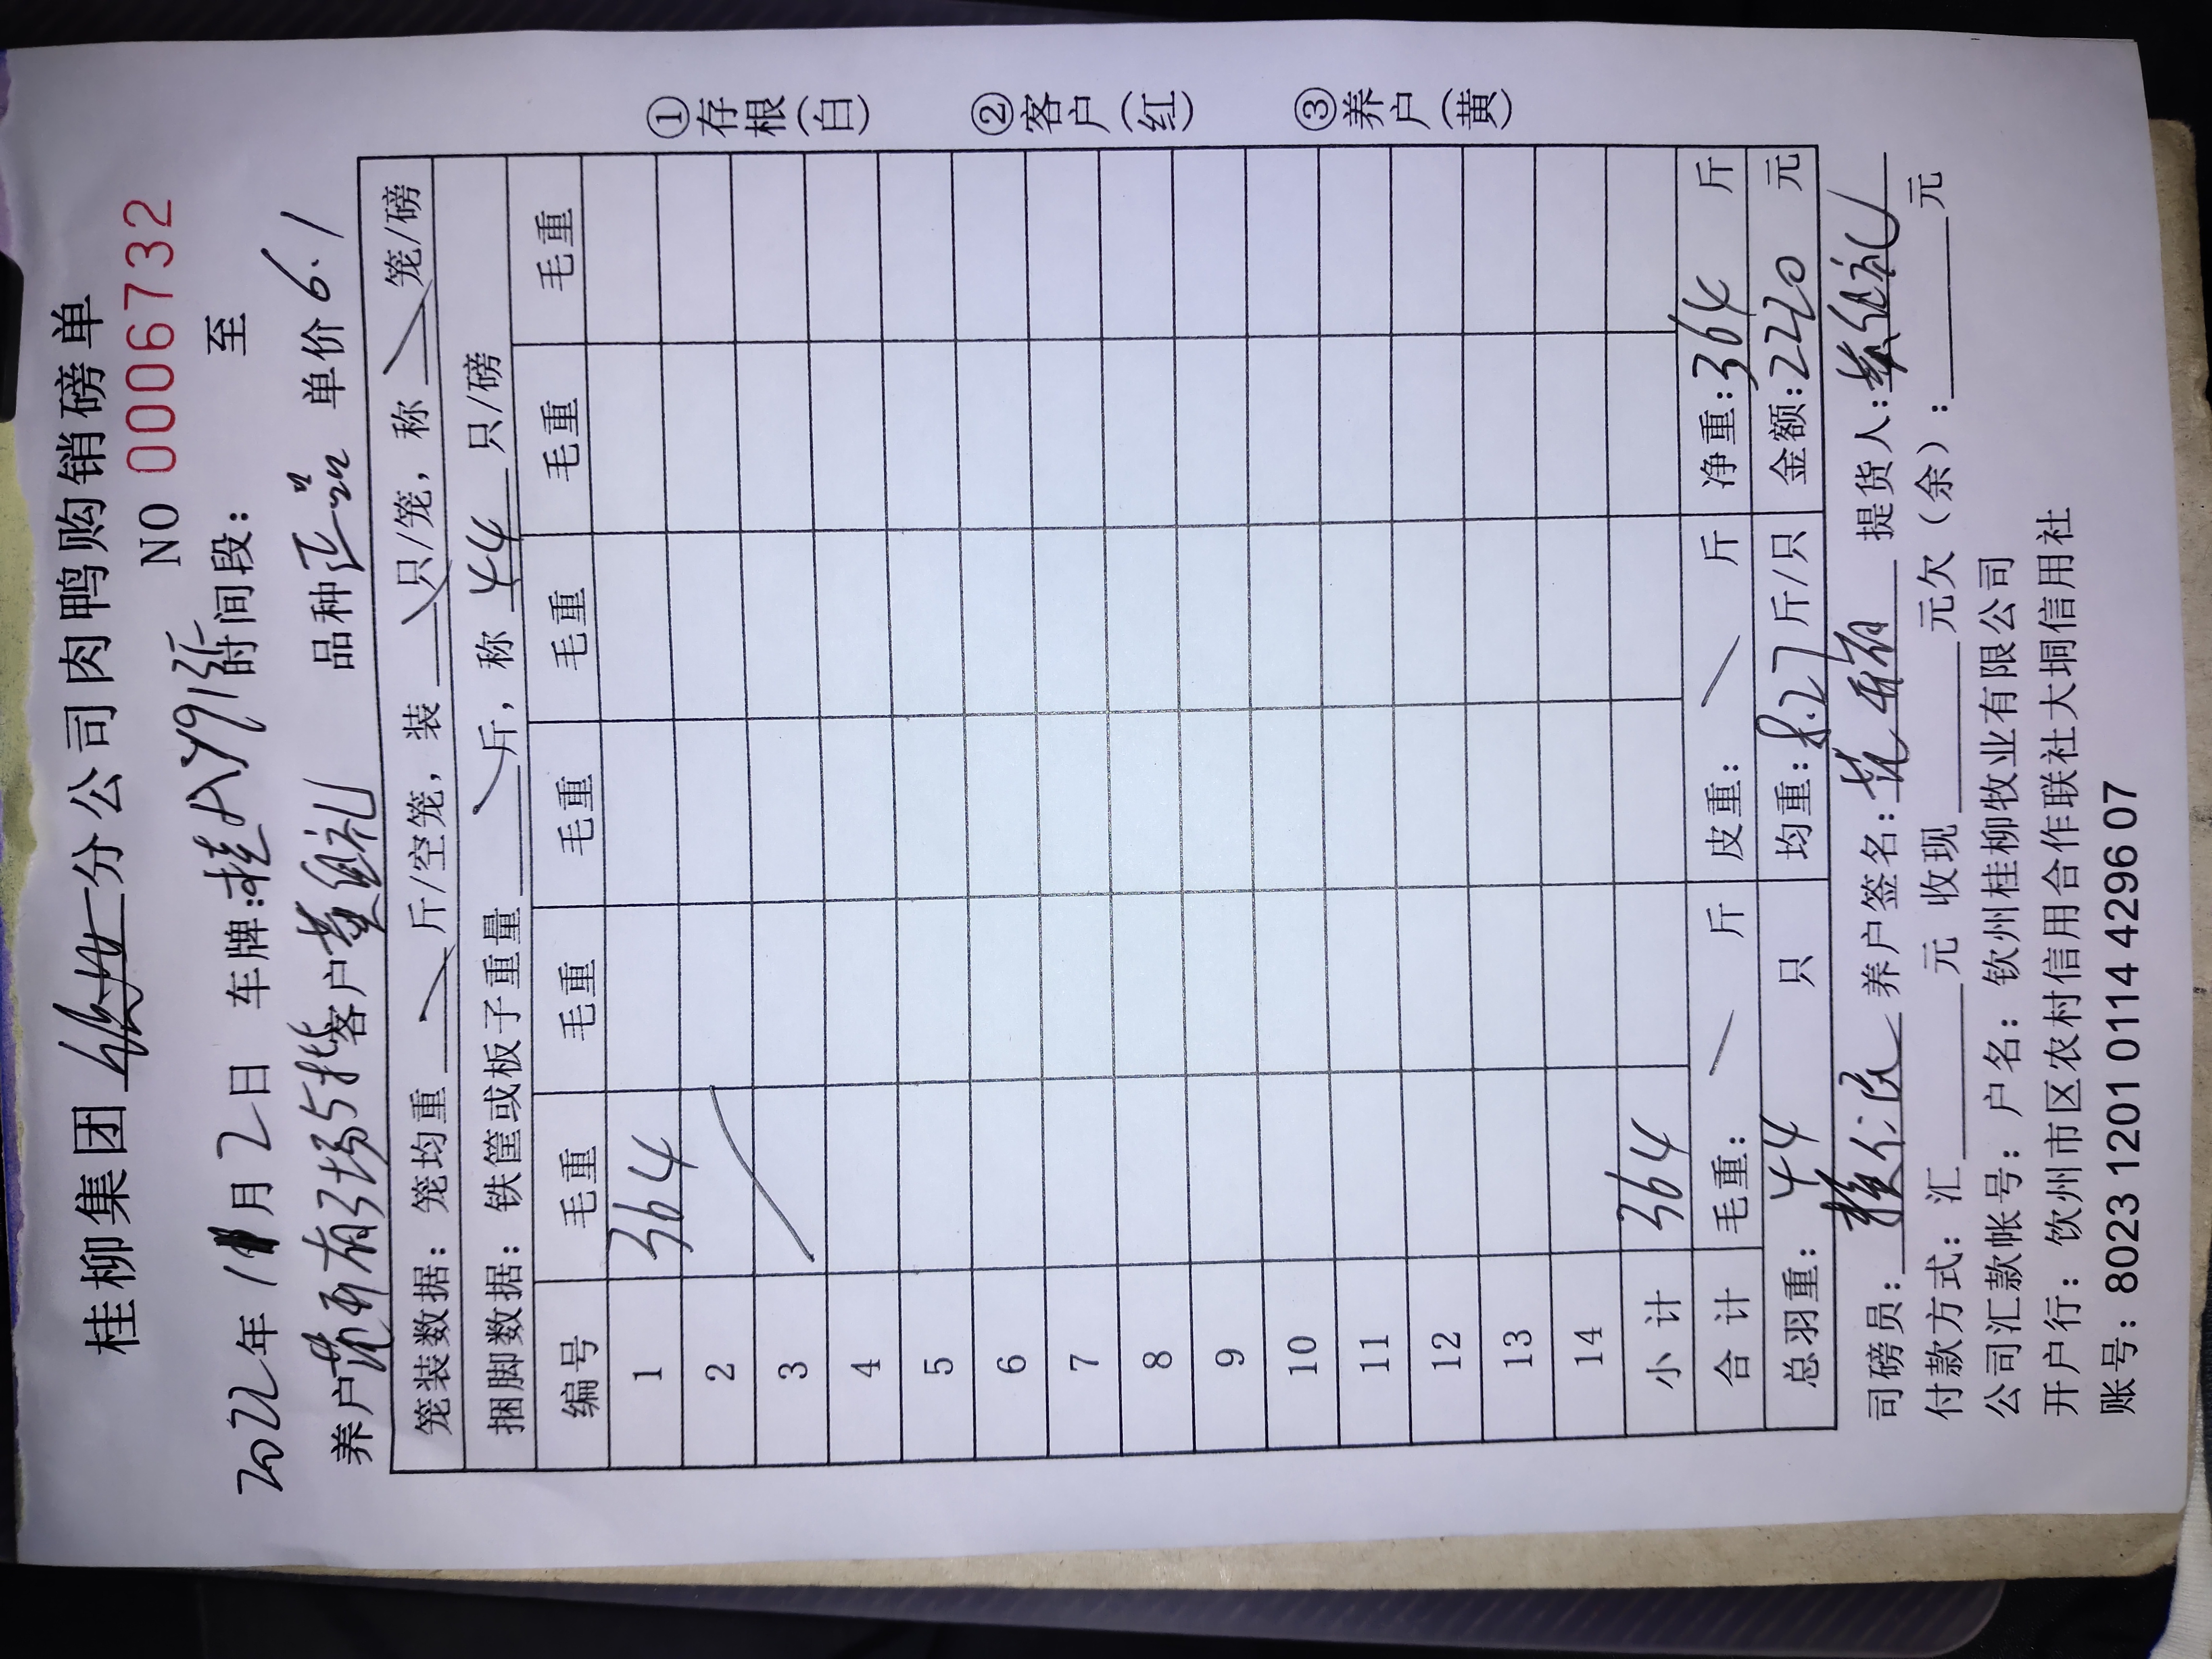 桂柳集团 钦州 分公司肉鸭购销磅单
NO 0006732
2022年11月2日 车牌:桂AY915 时间段: 至
养户范所有弓场5批客户黄组礼 品种正品 单价6.1
笼装数据: 笼均重 斤/空笼, 装 只/笼, 称 笼/磅
捆脚数据: 铁筐或板子重量 斤, 称 44 只/磅
编号 毛重 毛重 毛重 毛重 毛重 毛重
1 364
2
3
4
5
6
7
8
9
10
11
12
13
14
小计 364
合计 毛重: 斤 皮重: 斤 净重:364 斤
总羽重: 44 只 均重:8.27斤/只 金额:2220 元
司磅员: 养户签名: 提货人:
付款方式: 汇 元 收现 元欠(余): 元
公司汇款帐号: 户名: 钦州桂柳牧业有限公司
开户行: 钦州市区农村信用合作联社大垌信用社
账号: 8023 1201 0114 4296 07
①存根(白)
②客户(红)
③养户(黄)